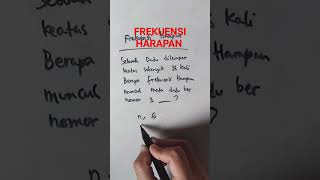 FREKUENSI
HARAPAN
Frekuensi
Sebuah Dadu dilempar
keatas sebanyak 36 kali
Berapa frekuensi Harapan
muncul mata dadu ber
nomor 3 ___ ?
n, 6